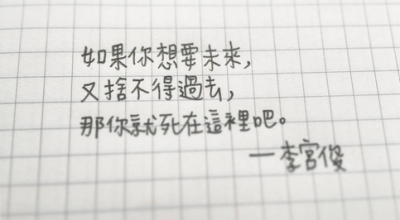 如果你想要未來,
又捨不得過去,
那你就死在這裡吧。
—李宮俊